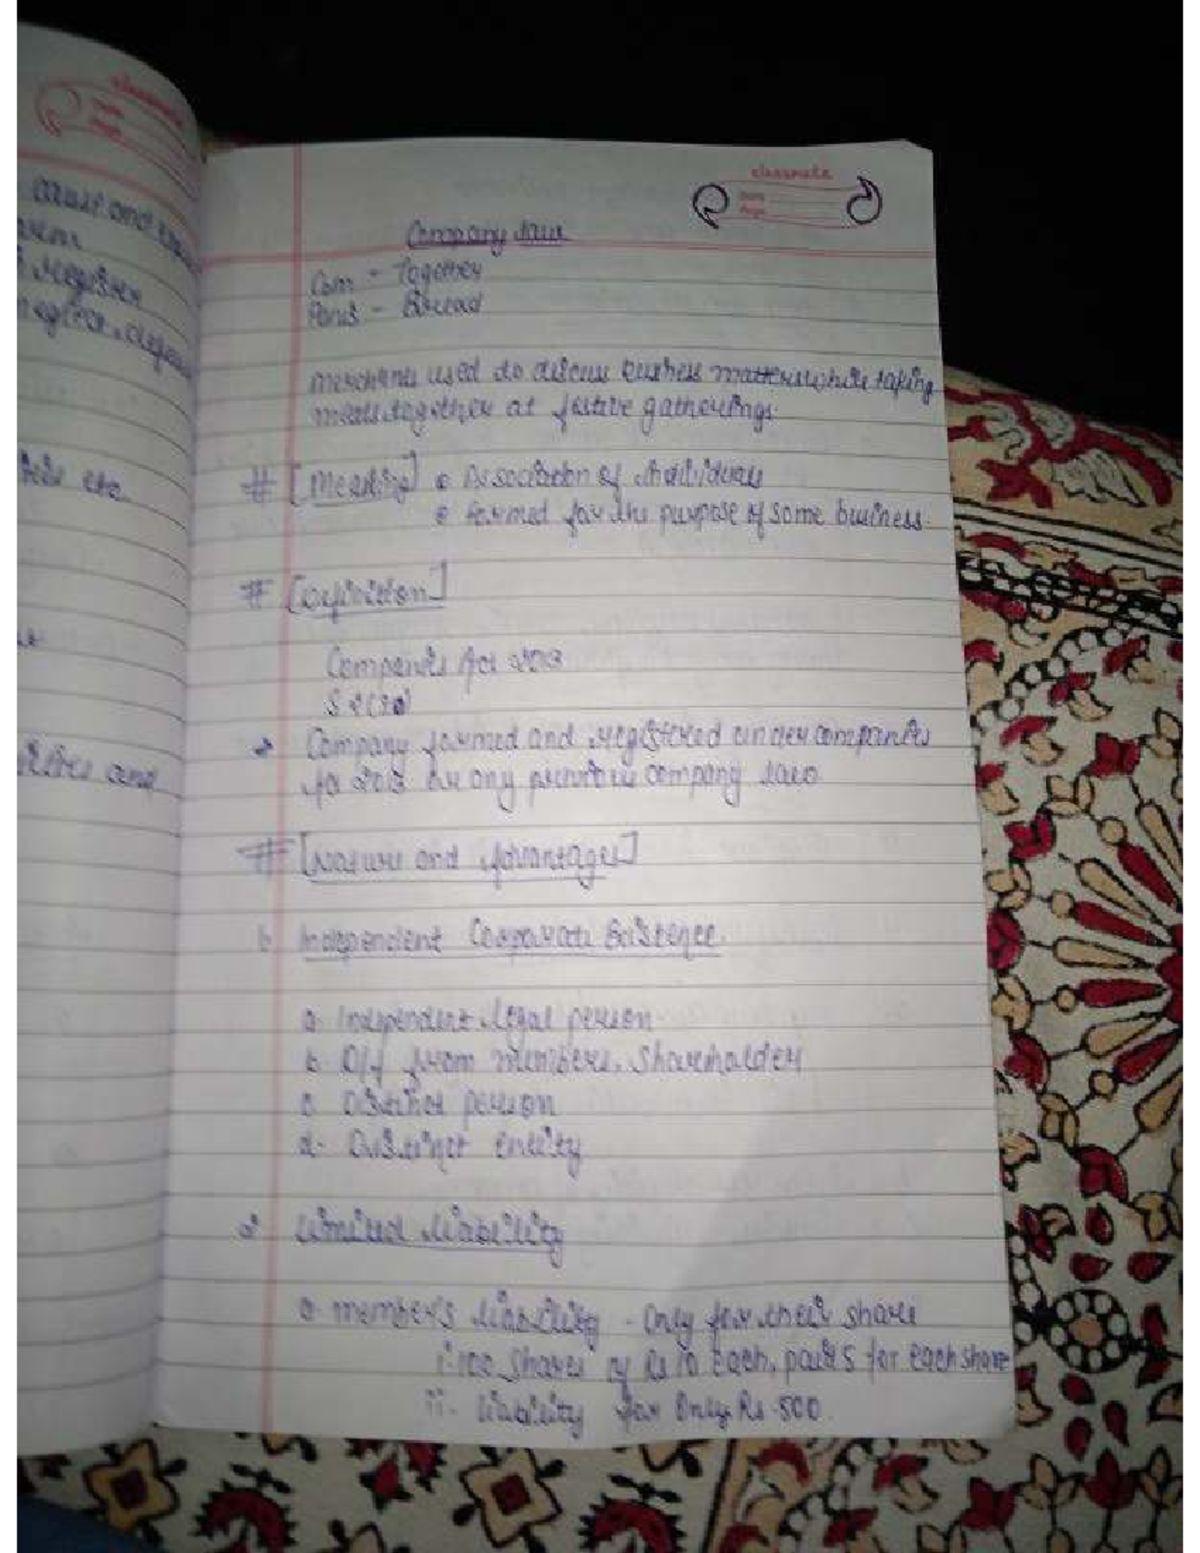 classmate
cause and
register
etc.
and
classmate
Date
Page
Company Law
Com - Together
Panis - Bread
Merchants used to discuss business matters while taking
meals together at festive gatherings.
# [Meaning] • Association of individuals
• formed for the purpose of some business.
# [Definition]
Companies Act 2013
S 2(20)
Company formed and registered under companies
Act 2013 or any previous company law.
# [Nature and Advantages]
Independent Corporate Existence.
a- Independent legal person
b D/f from members, shareholder
c Distinct person
d- Distinct entity
2 Limited liability
a- member's liability - Only for their share
i- 100 shares of Rs 10 each, paid 5 for each share
ii- liability for Only Rs 500.